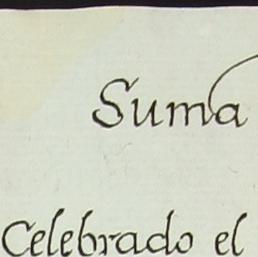 Suma
Celebrado el